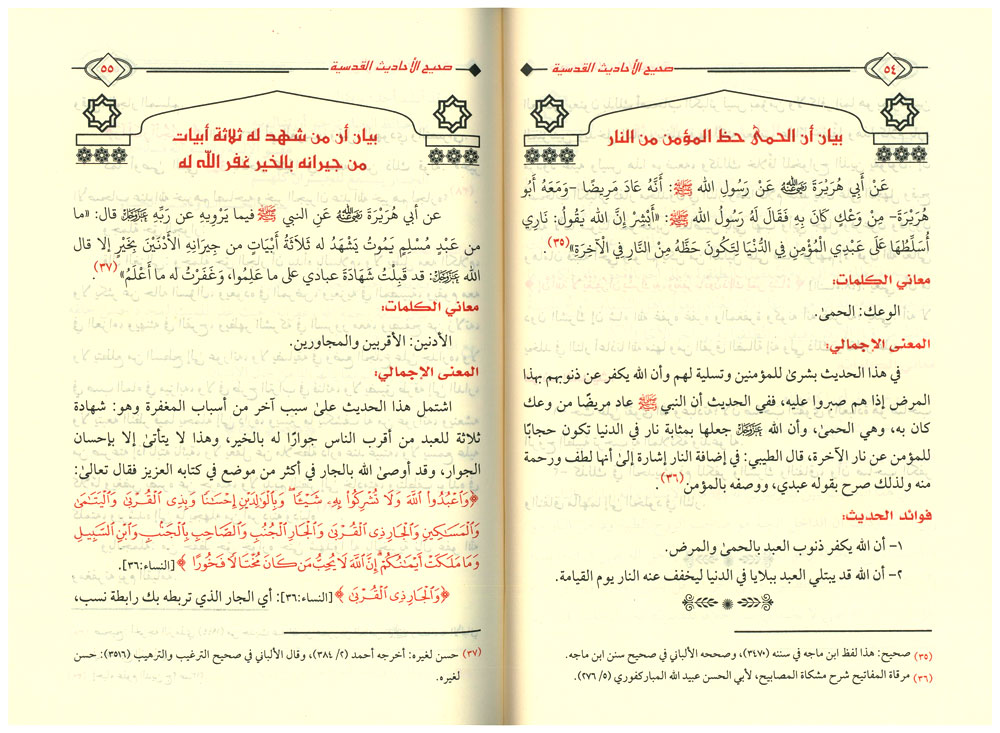 ٥٤
صحيح الأحاديث القدسية
بيان أن الحمىٰ حظ المؤمن من النار
عَنْ أَبِي هُرَيْرَةَ رضي الله عنه عَنْ رَسُولِ الله ﷺ: أَنَّهُ عَادَ مَرِيضًا -وَمَعَهُ أَبُو
هُرَيْرَةَ- مِنْ وَعْكٍ كَانَ بِهِ فَقَالَ لَهُ رَسُولُ الله ﷺ: «أَبْشِرْ إِنَّ الله يَقُولُ: نَارِي
أُسَلِّطُهَا عَلَى عَبْدِي الْمُؤْمِنِ فِي الدُّنْيَا لِتَكُونَ حَظَّهُ مِنْ النَّارِ فِي الْآخِرَةِ»(٣٥).
معاني الكلمات:
الوعك: الحمىٰ.
المعنى الإجمالي:
في هذا الحديث بشرىٰ للمؤمنين وتسلية لهم وأن الله يكفر عن ذنوبهم بهذا
المرض إذا هم صبروا عليه، ففي الحديث أن النبي ﷺ عاد مريضًا من وعك
كان به، وهي الحمىٰ، وأن الله عز وجل جعلها بمثابة نار في الدنيا تكون حجابًا
للمؤمن عن نار الآخرة، قال الطيبي: في إضافة النار إشارة إلىٰ أنها لطف ورحمة
منه ولذلك صرح بقوله عبدي، ووصفه بالمؤمن(٣٦).
فوائد الحديث:
١- أن الله يكفر ذنوب العبد بالحمىٰ والمرض.
٢- أن الله قد يبتلي العبد ببلايا في الدنيا ليخفف عنه النار يوم القيامة.
(٣٥) صحيح: هذا لفظ ابن ماجه في سننه (٣٤٧٠)، وصححه الألباني في صحيح سنن ابن ماجه.
(٣٦) مرقاة المفاتيح شرح مشكاة المصابيح، لأبي الحسن عبيد الله المباركفوري (٥/ ٢٧٦).
صحيح الأحاديث القدسية
٥٥
بيان أن من شهد له ثلاثة أبيات
من جيرانه بالخير غفر الله له
عن أبي هُرَيْرَةَ رضي الله عنه عَنِ النبي ﷺ فيما يَرْوِيهِ عن رَبِّهِ عز وجل قال: «ما
من عَبْدٍ مُسْلِمٍ يَمُوتُ يَشْهَدُ له ثَلَاثَةُ أَبْيَاتٍ من جِيرَانِهِ الأَدْنَيْنَ بِخَيْرٍ إلا قال
الله عز وجل: قد قَبِلْتُ شَهَادَةَ عبادي على ما عَلِمُوا، وَغَفَرْتُ له ما أَعْلَمُ»(٣٧).
معاني الكلمات:
الأدنين: الأقربين والمجاورين.
المعنى الإجمالي:
اشتمل هذا الحديث علىٰ سبب آخر من أسباب المغفرة وهو: شهادة
ثلاثة للعبد من أقرب الناس جوارًا له بالخير، وهذا لا يتأتىٰ إلا بإحسان
الجوار، وقد أوصىٰ الله بالجار في أكثر من موضع في كتابه العزيز فقال تعالىٰ:
﴿وَٱعْبُدُوا۟ ٱللَّهَ وَلَا تُشْرِكُوا۟ بِهِۦ شَيْـًٔا ۖ وَبِٱلْوَٰلِدَيْنِ إِحْسَٰنًا وَبِذِى ٱلْقُرْبَىٰ وَٱلْيَتَٰمَىٰ
وَٱلْمَسَٰكِينِ وَٱلْجَارِ ذِى ٱلْقُرْبَىٰ وَٱلْجَارِ ٱلْجُنُبِ وَٱلصَّاحِبِ بِٱلْجَنۢبِ وَٱبْنِ ٱلسَّبِيلِ
وَمَا مَلَكَتْ أَيْمَٰنُكُمْ ۗ إِنَّ ٱللَّهَ لَا يُحِبُّ مَن كَانَ مُخْتَالًا فَخُورًا﴾ [النساء:٣٦].
﴿وَٱلْجَارِ ذِى ٱلْقُرْبَىٰ﴾ [النساء:٣٦]: أي الجار الذي تربطه بك رابطة نسب،
(٣٧) حسن لغيره: أخرجه أحمد (٢/ ٣٨٤)، وقال الألباني في صحيح الترغيب والترهيب (٣٥١٦): حسن
لغيره.